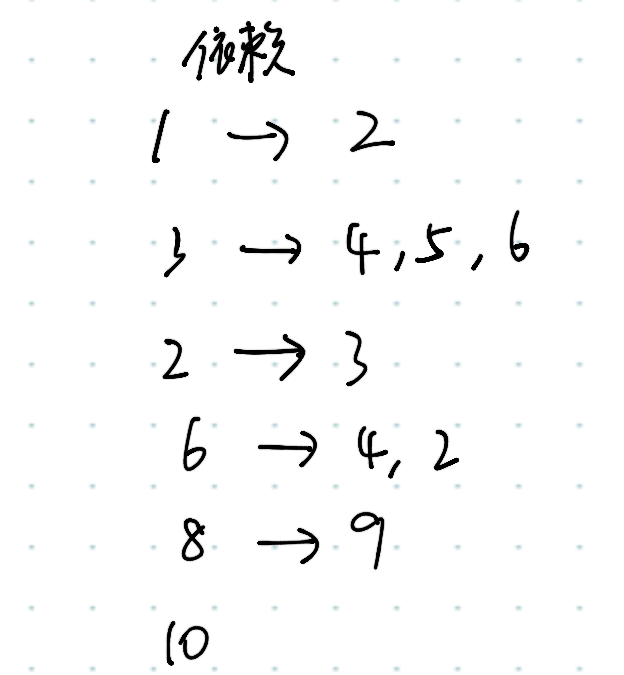 依赖
1 → 2
3 → 4,5,6
2 → 3
6 → 4,2
8 → 9
10